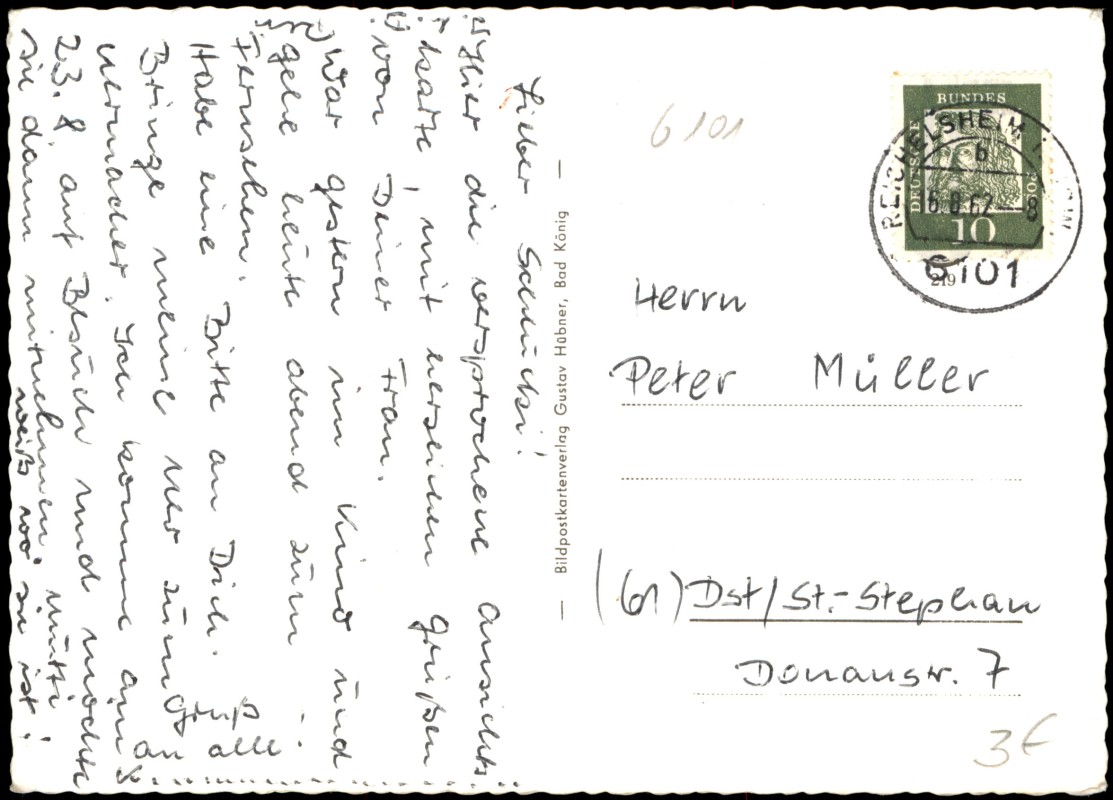 Lieber Schucki!
Hier die versprochene Ansichts
karte, mit herzlichen Grüßen
von Deiner Frau.
War gestern im Kino und
gehe heute abend zum
Fernsehen.
Habe eine Bitte an Dich.
Bringe meine Uhr zum
Uhrmacher. Ich komme am
23. 8 auf Besuch und möchte
sie dann mitnehmen. Mutti
weiß wo sie ist!
Gruß
an alle.
Bildpostkartenverlag Gustav Hübner, Bad König
6101
DEUTSCHE BUNDESPOST
10
REICHELSHEIM
b
16.8.62--8
6101
219
Herrn
Peter Müller
(61) Dst/St.-Stephan
Donaustr. 7
3€